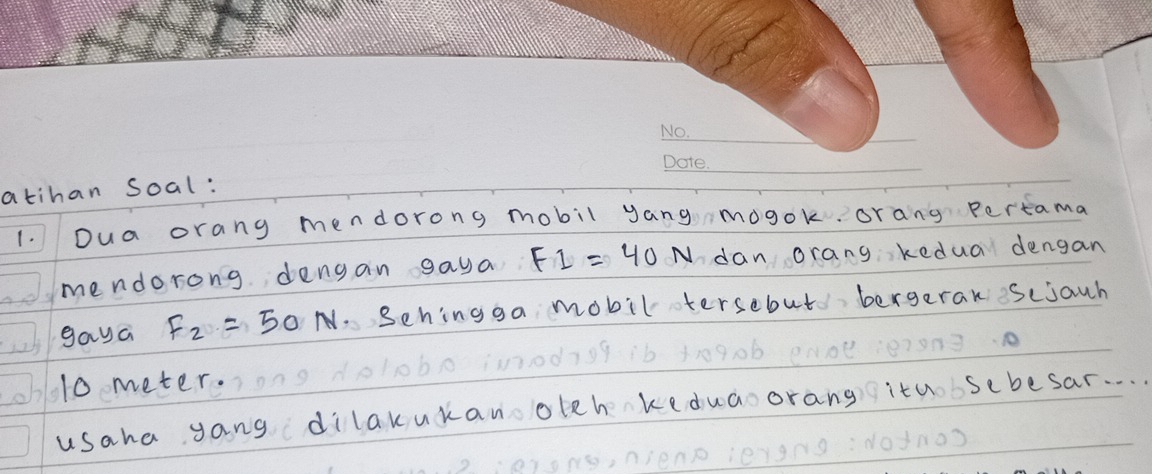 No.
Date.
atihan Soal:
1. Dua orang mendorong mobil yang mogok. orang Pertama
mendorong dengan gaya F1 = 40 N dan orang kedua dengan
gaya F2 = 50 N. Sehingga mobil tersebut bergerak sejauh
10 meter.
usaha yang dilakukan oleh kedua orang itu sebesar....